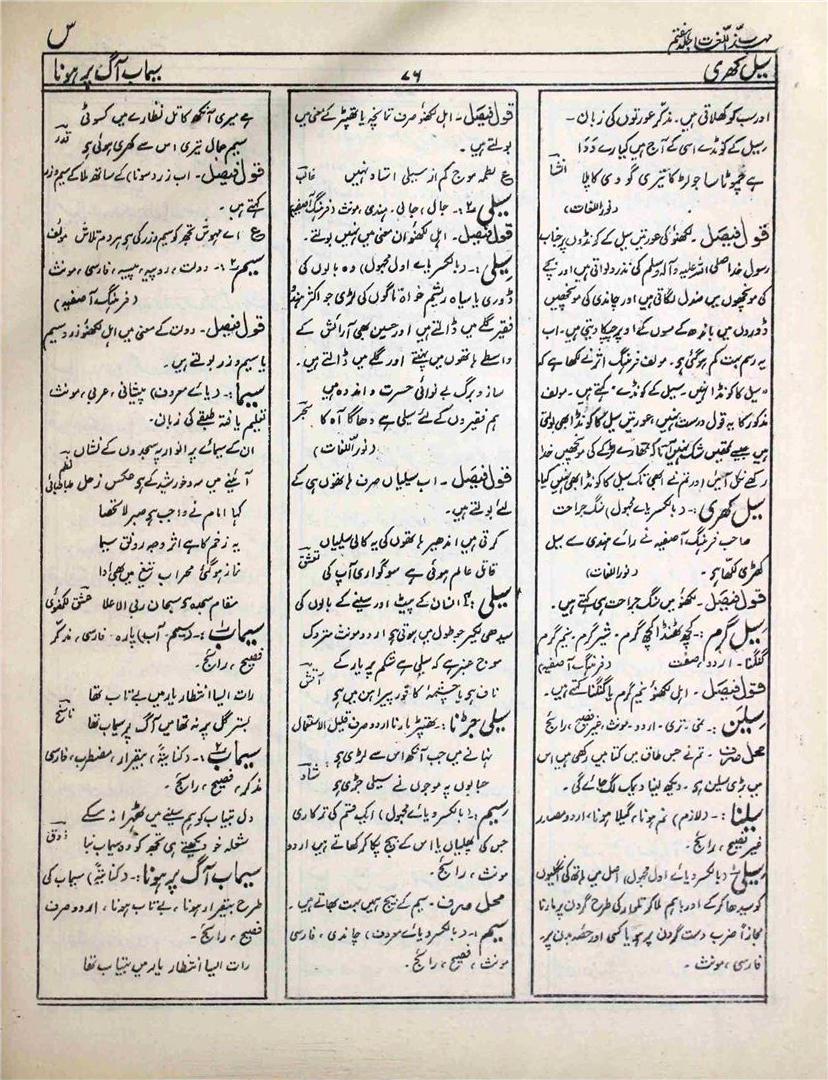 مہذّب اللّغت جلد ہفتم
س
سیل کھری
۷۶
سیماب آگ پر ہونا
اور سب کو کھلاتی ہیں۔ مذکّر عورتوں کی زبان۔
سیل کے کونڈے اسی کے آج ہیں کیا رے دَدَا
ہے چھوٹا سا جو لڑکا تیری گودی کا پلا انشا
(نور اللغات)
قول فیصل۔ لکھنؤ کی عورتیں سیل کے کونڈوں پر جناب
رسول خدا صلی اللہ علیہ و آلہ وسلم کی نذر دلواتی ہیں اور بچے
کی مونچھوں میں صندل لگاتی ہیں اور چاندی کی مونچھیں
ڈوروں میں باندھ کے مسوں کے اوپر چپکا دیتی ہیں۔ اب
یہ رسم بہت کم ہو گئی ہو۔ مولف فرہنگ اثر نے لکھا ہے کہ
"سیل کا کونڈا نہیں۔ سیل کے کونڈے" کہتے ہیں۔ مولف
مذکور کا یہ قول درست نہیں، عورتیں سیل کا کونڈا بھی بولتی
ہیں جیسے تمھیں شک نہیں آتا کہ تمھارے لڑکے کی مونچھیں خدا
رکھے نکل آئیں اور تم نے ابھی تک سیل کا کونڈا بھی نہیں کیا۔
سیل کھری :۔ (بالکسر یاے مجہول) سنگ جراحت
صاحب فرہنگ آصفیہ نے رائے ہندی سے سیل
کھڑی لکھا ہو۔ (نور اللغات)
قول فیصل۔ لکھنؤ میں سنگ جراحت ہی کہتے ہیں۔
سیل گرم :۔ کچھ ٹھنڈا کچھ گرم۔ شیر گرم۔ نیم گرم
گنگنا۔ اردو، صفت (فرہنگ آصفیہ)
قول فیصل۔ اہل لکھنؤ نیم گرم یا گنگنا کہتے ہیں۔
سیلن :۔ نمی، تری۔ اردو۔ مونث، غیر فصیح، رائج
محل صرف۔ تم نے جس طاق میں کتابیں رکھی ہیں اس
میں بڑی سیلن ہو۔ دیکھ لینا دیمک لگ جائے گی۔
سیلنا :۔ (لازم) نم ہونا، گیلا ہونا، اردو مصدر
غیر فصیح، رائج۔
سیلی :۔ (بالکسر و یائے اول مجہول) اصل میں ہاتھ کی انگلیوں
کو سیدھا کر کے اور باہم ملا کر تلوار کی طرح گردن پر مارنا
مجازاً ضرب دست گردن پر ہو یا کسی اور حصۂ بدن پر۔
فارسی، مونث۔
قول فیصل۔ اہل لکھنؤ صرف تمانچہ یا تھپڑ کے معنی میں
بولتے ہیں۔
ع لطمۂ موج کم از سیلی استاد نہیں غالب
سیلی ۲ :۔ جال، جالی۔ ہندی، مونث (فرہنگ آصفیہ)
قول فیصل۔ اہل لکھنؤ ان معنی میں نہیں بولتے۔
سیلی :۔ (بالکسر یائے اول مجہول) وہ بالوں کی
ڈوری یا سیاہ ریشم خواہ تاگوں کی لڑی جو اکثر ہندو
فقیر گلے میں ڈالتے ہیں اور حسین بھی آرائش کے
واسطے ہاتھوں میں پہنتے اور گلے میں ڈالتے ہیں۔
ساز و برگ بے نوائی حسرت و اندوہ ہیں
ہم فقیروں کے لئے سیلی ہے دھاگا آہ کا سحر
(نور اللغات)
قول فیصل۔ اب سیلیاں صرف ہاتھوں ہی کے
لئے بولتے ہیں۔
کرتی ہیں اندھیر ہاتھوں کی یہ کالی سیلیاں
قاتل عالم ہوئی ہے سوگواری آپ کی تعشق
سیلی :۔ انسان کے پیٹ اور سینے کے بالوں کی
سیدھی لکیر جو طول میں ہوتی ہو۔ اردو مونث متروک
موج عنبر ہے کہ سیلی ہے شکم پر یار کے
ناف ہو یا چشمہ کافور پیراہن میں ہو آتش
سیلی جڑنا :۔ تھپڑ مارنا اردو صرف قلیل الاستعمال
نہانے میں جب آنکھ اس سے لڑی ہو
حبابوں پہ موجوں نے سیلی جڑی ہو شاد
سیم :۔ (بالکسر و یائے مجہول) ایک قسم کی ترکاری
جس کی پھلیاں یا اس کے بیج پکا کر کھاتے ہیں اردو
مونث، رائج۔
محل صرف۔ سیم کے بیج ہمیں بہت بھاتے ہیں۔
سیم :۔ (بالکسر و یائے معروف) چاندی، فارسی
مونث، فصیح، رائج۔
ہے میری آنکھ کا تل نظارے میں کسوٹی
سیم جال تیری اس سے کھری ہوئی ہو قدر
قول فیصل۔ اب زر (سونا) کے ساتھ ملا کے سیم و زر
کہتے ہیں۔
ع اے مہوش تجھ کو سیم و زر کی ہو ہر دم تلاش مولف
سیم ۲ :۔ دولت، روپیہ، پیسہ، فارسی، مونث
(فرہنگ آصفیہ)
قول فیصل۔ دولت کے معنی میں اہل لکھنؤ زر و سیم
یا سیم و زر بولتے ہیں۔
سیما :۔ (یائے معروف) پیشانی، عربی، مونث
تعلیم یافتہ طبقے کی زبان۔
ان کے سیمائے پر انوار پہ سجدوں کے نشاں
آئینے میں مہ و خورشید کے ہو عکس زحل نظم طباطبائی
کہا امام نے واجب ہو صبر لا تھا
یہ زخم کا ہے اثر وجہ رونق سیما
نماز ہو گئی محراب تیغ میں بھی ادا
مقام سجدہ ہو سبحان ربی الاعلا عشق لکھنوی
سیماب :۔ (سیم۔ آب) پارہ۔ فارسی، مذکّر
فصیح، رائج۔
رات ایسا انتظار یار میں بے تاب تھا
بستر گل پر نہ تھا میں آگ پر سیماب تھا ناسخ
سیماب ۲ :۔ (کنایۃً) بیقرار، مضطرب، فارسی
مذکر، فصیح، رائج۔
دل بیتاب کو ہم سینے میں ٹھہرا نہ سکے
شعلہ خو دیکھتے ہی تجھ کو وہ سیماب بنا ذوق
سیماب آگ پر ہونا :۔ (کنایۃً) سیماب کی
طرح بیقرار ہونا، بے تاب ہونا، اردو صرف
فصیح، رائج۔
رات ایسا انتظار یار میں بیتاب تھا